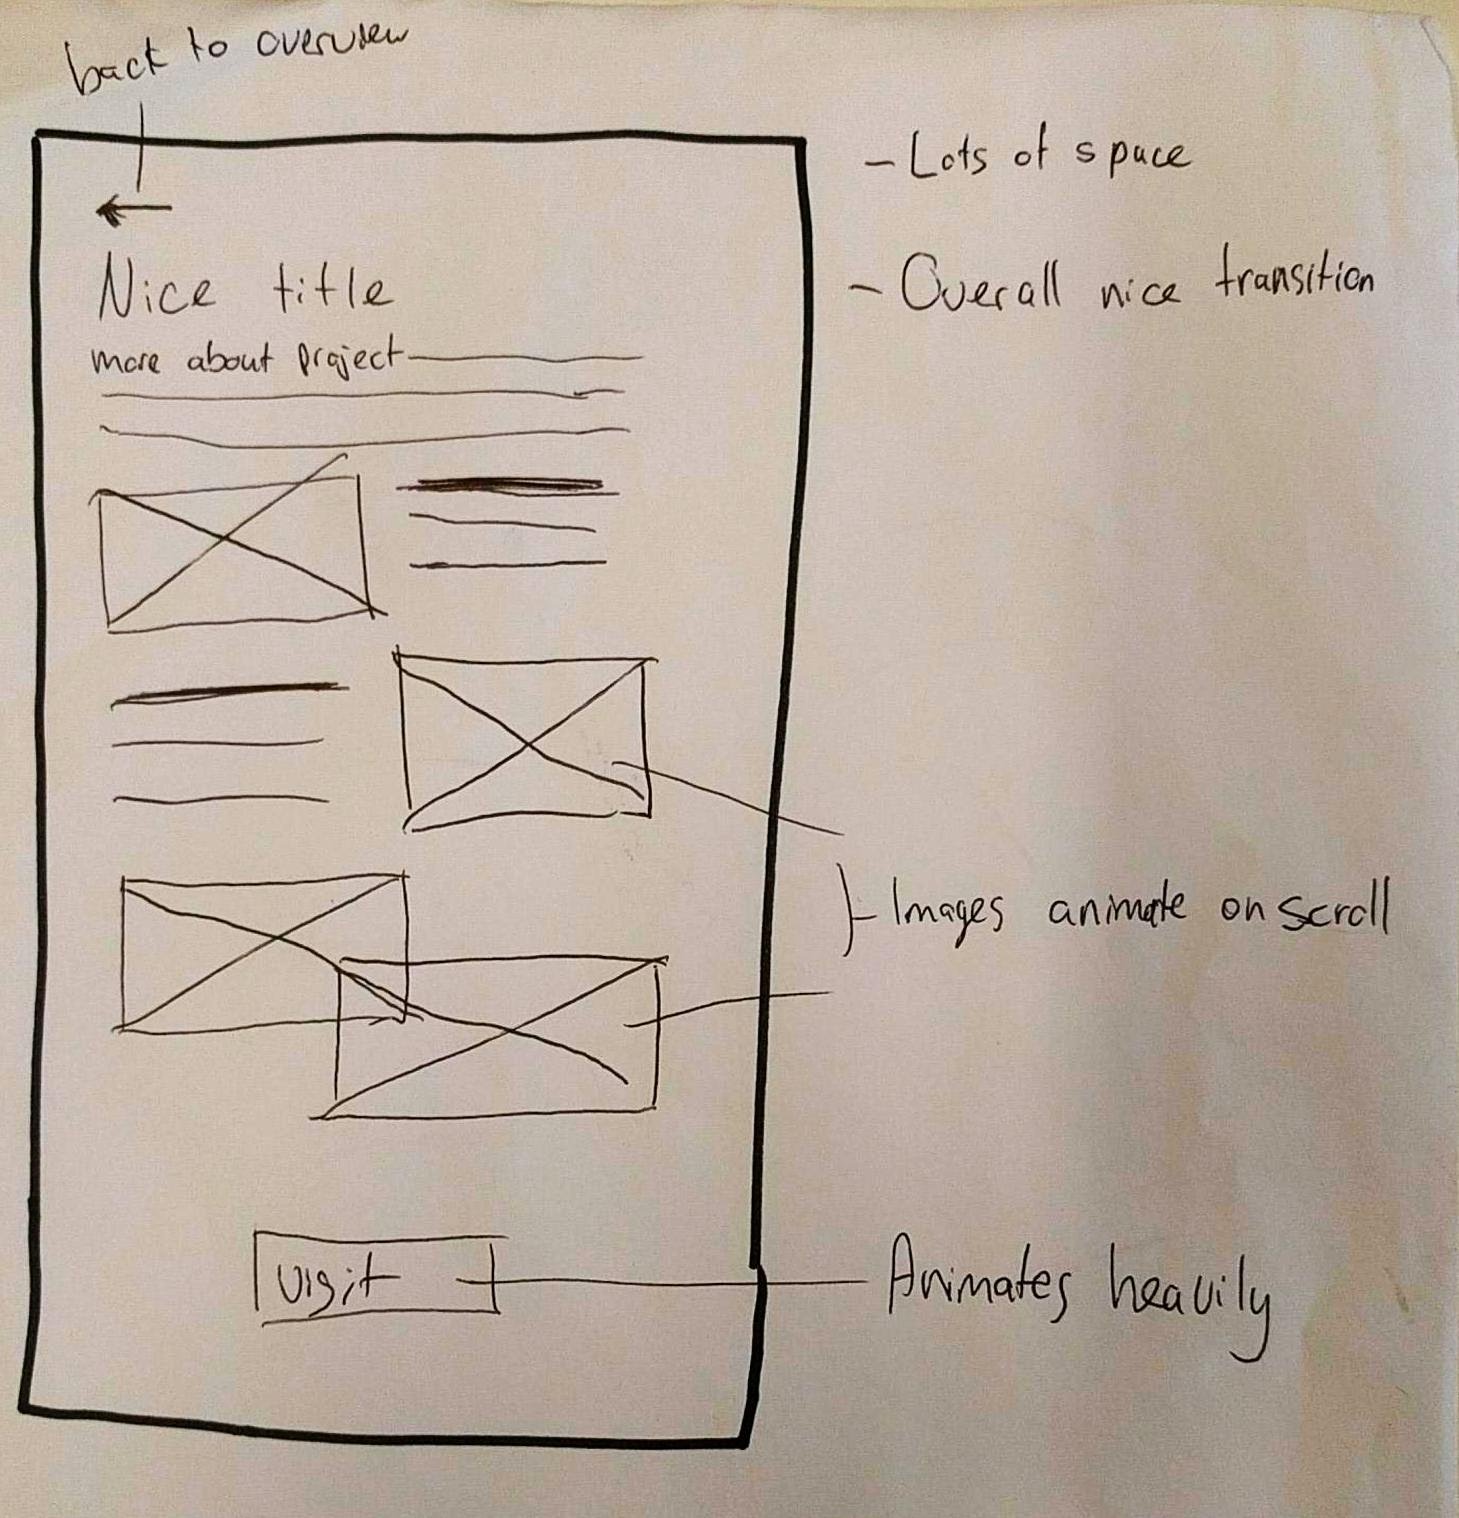 back to overview
- Lots of space
- Overall nice transition
Nice title
more about project
- Images animate on scroll
visit
Animates heavily